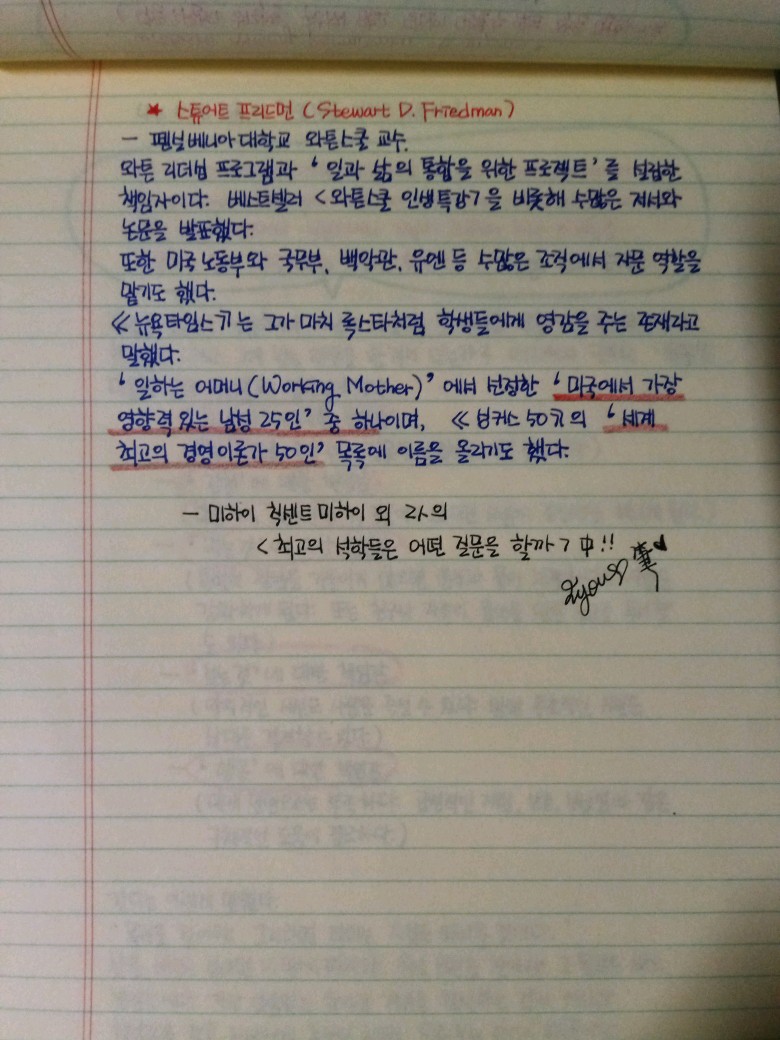 ★ 스튜어트 프리드먼 (Stewart D. Friedman)
- 펜실베니아대학교 와튼스쿨 교수.
와튼 리더십 프로그램과 '일과 삶의 통합을 위한 프로젝트'를 설립한
책임자이다. 베스트셀러 <와튼스쿨 인생특강>을 비롯해 수많은 저서와
논문을 발표했다.
또한 미국 노동부와 국무부, 백악관, 유엔 등 수많은 조직에서 자문 역할을
맡기도 했다.
≪뉴욕타임스≫는 그가 마치 록스타처럼 학생들에게 영감을 주는 존재라고
말했다.
'일하는 어머니(Working Mother)'에서 선정한 '미국에서 가장
영향력 있는 남성 25인' 중 하나이며, ≪싱커스 50≫의 '세계
최고의 경영이론가 50인' 목록에 이름을 올리기도 했다.
- 미하이 칙센트미하이 외 2人의
<최고의 석학들은 어떤 질문을 할까> 中!!